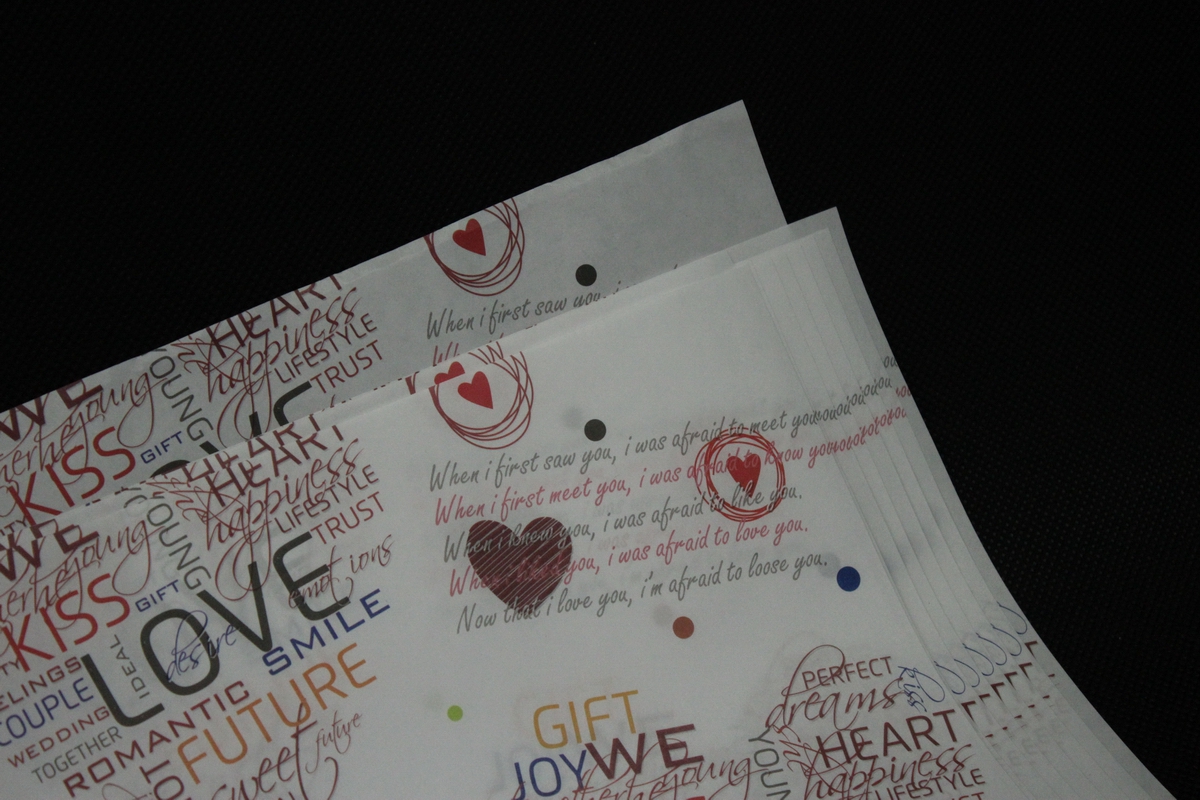 HEART
happiness
LIFESTYLE
TRUST
WE
young
YOUNG
KISS
GIFT
When i first saw you, i
When i first saw you, i was afraid to meet you
When i first meet you, i was afraid to know you
When i knew you, i was afraid to like you.
you, i was afraid to love you.
Now that i love you, i'm afraid to loose you.
HEART
HEART
happiness
LIFESTYLE
TRUST
WE
young
YOUNG
KISS
GIFT
LOVE
emotions
desire
SMILE
IDEAL
COUPLE
WEDDING
TOGETHER
ROMANTIC
FUTURE
sweet
future
GIFT
JOY
WE
young
PERFECT
dreams
kiss
HEART
happiness
LIFESTYLE